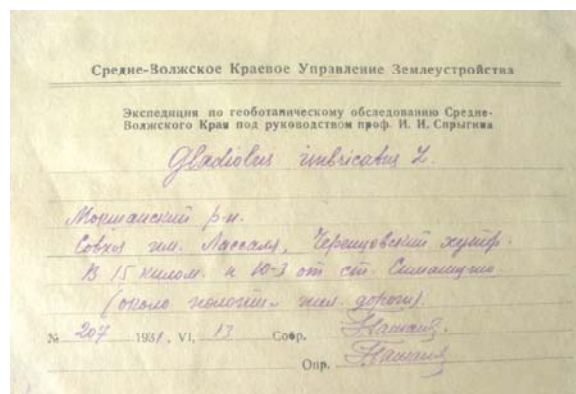 Средне-Волжское Краевое Управление Землеустройства
Экспедиция по геоботаническому обследованию Средне-
Волжского Края под руководством проф. И. И. Спрыгина
Gladiolus imbricatus L.
Моршанский р-н.
Совхоз им. Лассаля, хутор.
В 15 килом. к Ю-З от ст.
(около жел. дороги).
№ 207 1931, VI, 13 Собр.
Опр.